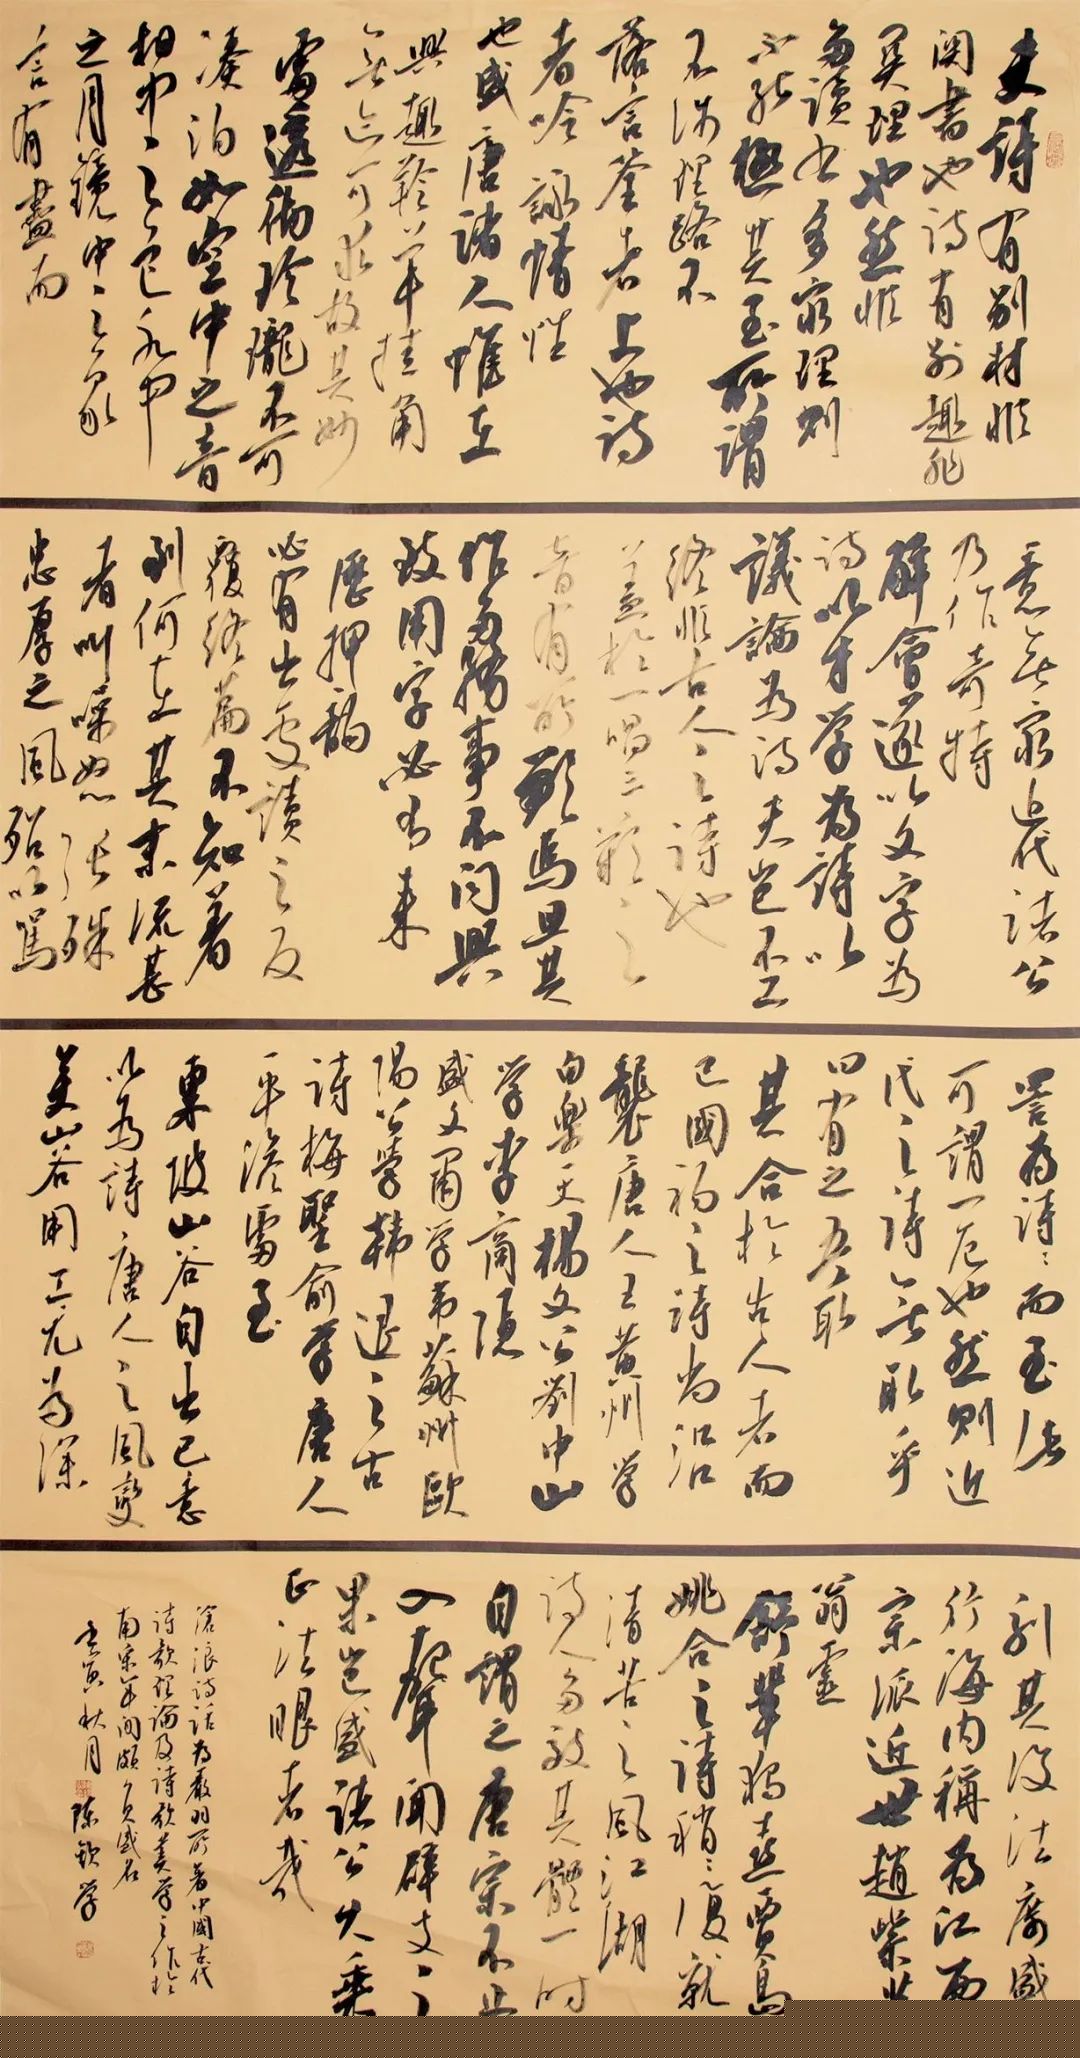 夫詩有别材非
関書也詩有别趣非
関理也然非
多讀書多窮理則
不能極其至所謂
不涉理路不
落言荃者上也詩
者吟詠情性
也盛唐諸人惟在
興趣羚羊掛角
無迹可求故其妙
處透徹玲瓏不可
凑泊如空中之音
相中之色水中
之月鏡中之象
言有盡而
意無窮近代諸公
乃作奇特
解會遂以文字為
詩以才學為詩以
議論為詩夫豈不工
終非古人之詩也
蓋於一唱三歎之
音有所歉焉且其
作多務事不问興
致用字必有来
歷押韵
必有出處讀之反
覆終篇不知着
到何在其末流甚
者叫噪怒張殊
忠厚之風殆以罵
詈為詩詩而至此
可謂一厄也然則近
代之詩無取乎
曰有之吾取
其合於古人者而
已國初之詩尚沿
襲唐人王黄州学
白樂天楊文公劉中山
学李商隱
盛文肅学韦蘇州歐
陽公學韩退之古
詩梅聖俞学唐人
平澹處至
東坡山谷自出己意
以為詩唐人之風變
矣山谷用工尤為深
刻其後法席盛
行海内稱為江西
宗派近世趙紫芝
翁靈
舒輩獨喜賈島
姚合之詩稍稍復就
清苦之風江湖
詩人多效其體一时
自謂之唐宗不止
入聲聞辟支之
果豈盛諸公大乘
正法眼者哉
滄浪詩話為嚴羽所著中國古代
詩歌理論及詩歌美学之作於
南宋年间頗負盛名
壬寅秋月 陈欽学